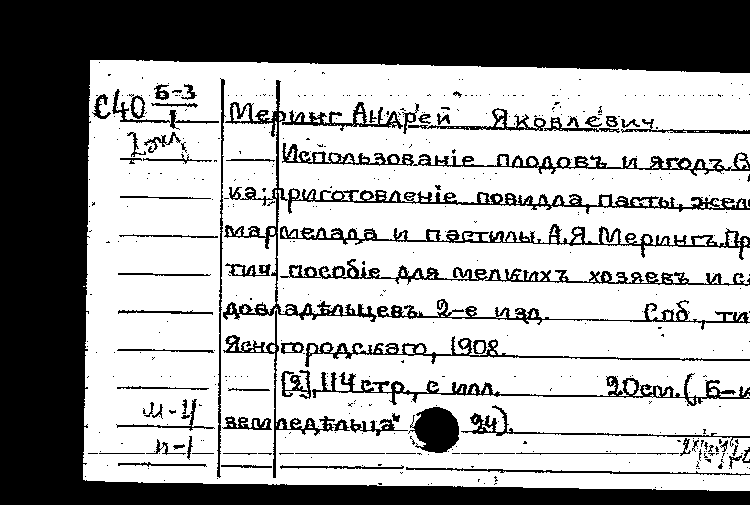 С40 Б-3
1
2 экз
Меринг, Андрей Яковлевич.
Использованіе плодовъ и ягодъ.
ка; приготовленіе повидла, пасты, желе
мармелада и пастилы. А.Я. Мерингъ. Пр
тич. пособіе для мелкихъ хозяевъ и са
довладѣльцевъ. 2-е изд. Спб., ти
Ясногородскаго, 1908.
[2], 114 стр., с илл. 20 см. („Б-к
м-4
земледѣльца" 24).
п-1